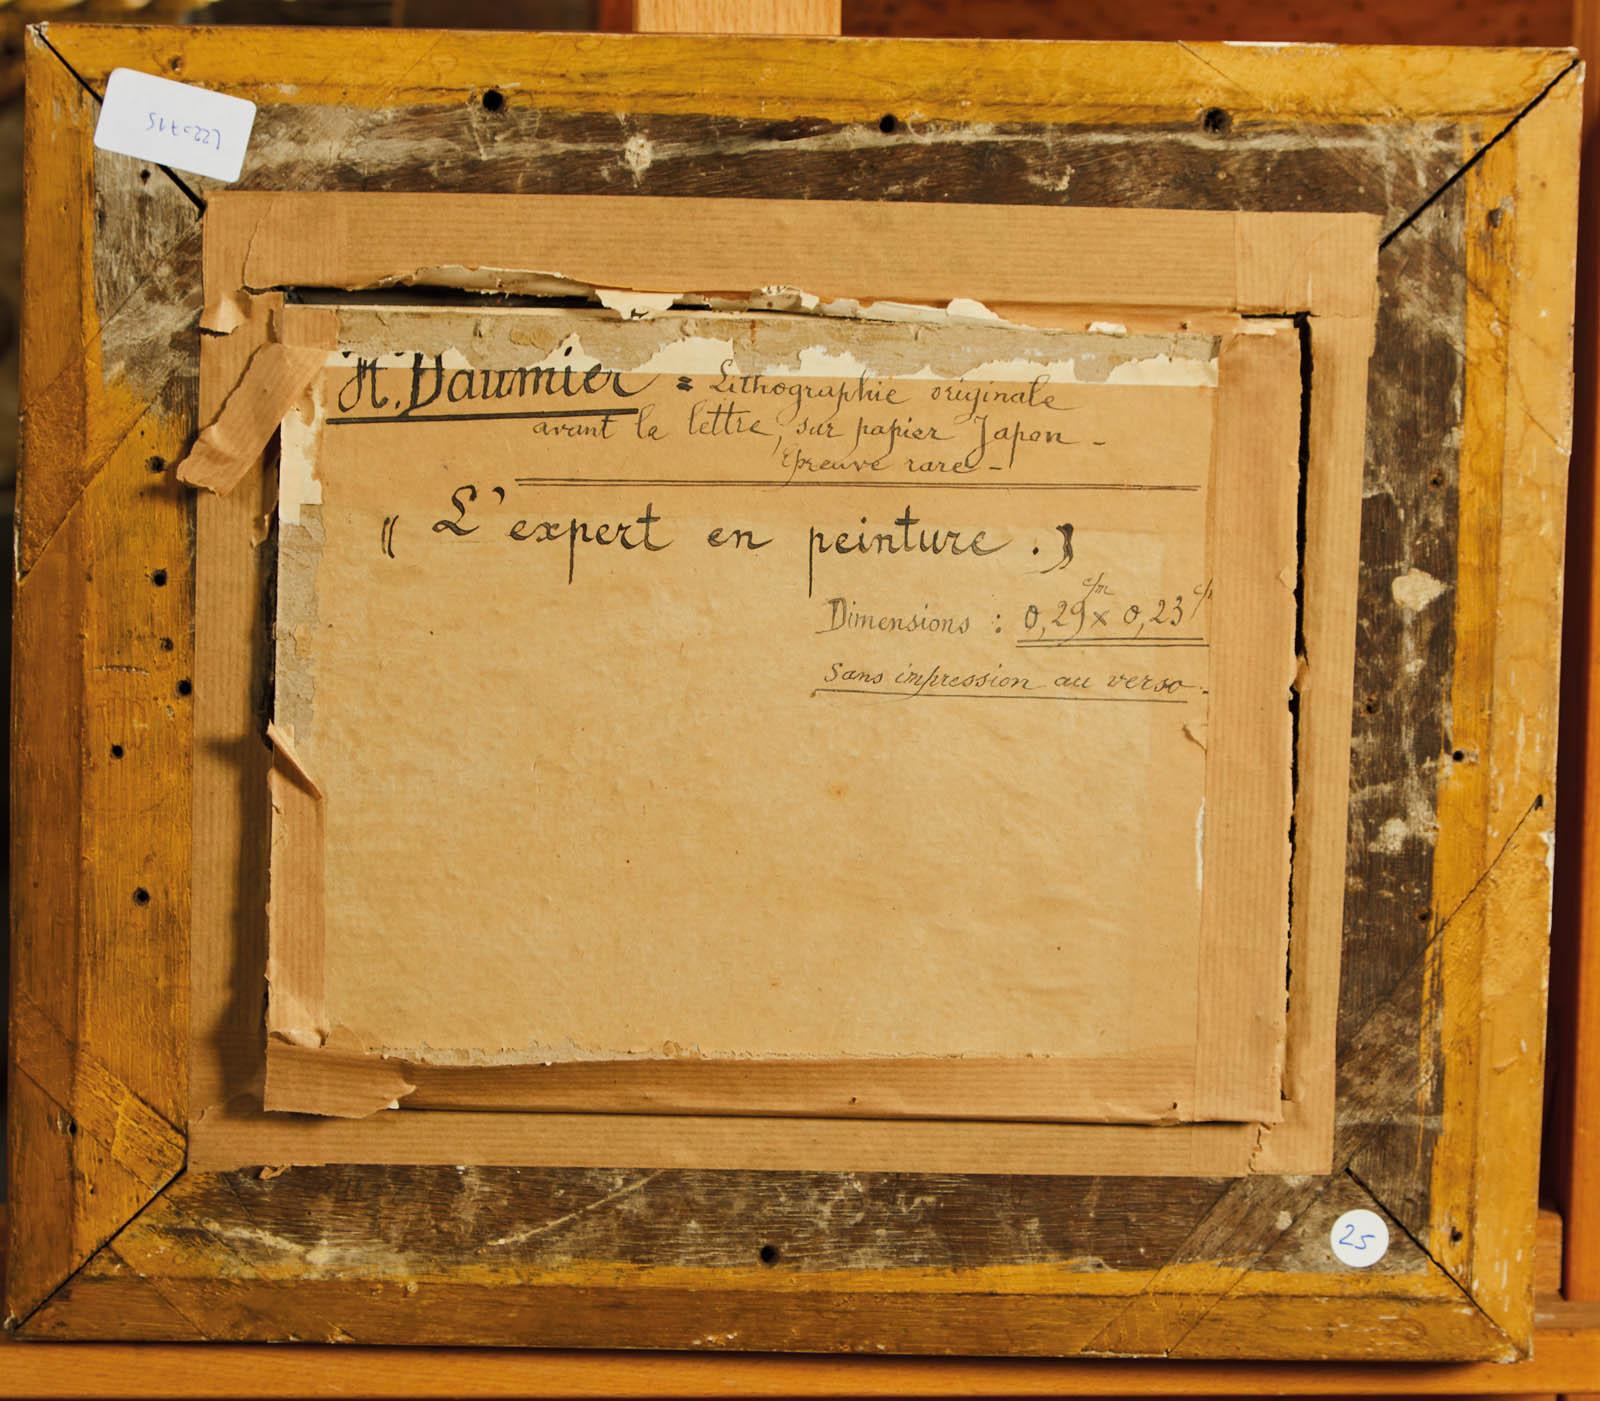 L22-715
H. Daumier = Lithographie originale
avant la lettre, sur papier Japon -
Epreuve rare -
« L'expert en peinture. »
Dimensions : 0,29 c/m x 0,23 c/m
Sans impression au verso -
25